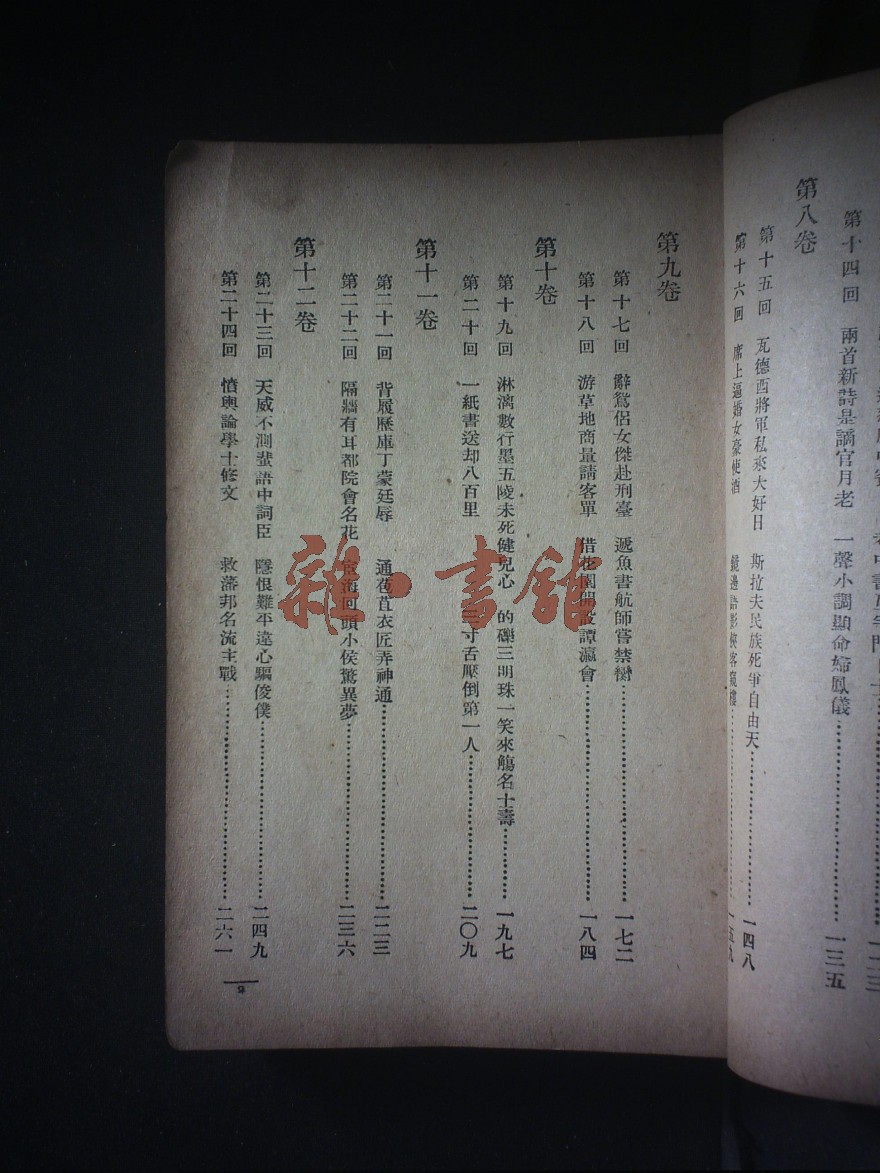 第十四回 兩首新詩是謫官月老 一聲小調顯命婦鳳儀 一三五
第八卷
第十五回 瓦德西將軍私來大好日 斯拉夫民族死爭自由天…………一四八
第十六回 席上逼婚女豪使酒 鏡邊語影俠客窺樓…………一五九
第九卷
第十七回 辭鴛侶女傑赴刑臺 遞魚書航師嘗禁臠…………一七二
第十八回 游草地商量請客單 借花園開設譚瀛會…………一八四
第十卷
第十九回 淋漓數行墨五陵未死健兒心 的礫三明珠一笑來觴名士壽…………一九七
第二十回 一紙書送却八百里 三寸舌壓倒第一人…………二〇九
第十一卷
第二十一回 背履歷庫丁蒙廷辱 通苞苴衣匠弄神通…………二二三
第二十二回 隔牆有耳都院會名花 宦海回頭小侯驚異夢…………二三六
第十二卷
第二十三回 天威不測蜚語中詞臣 隱恨難平遠心驅俊僕…………二四九
第二十四回 憤輿論學士修文 救藩邦名流主戰…………二六一
2
雜·書館